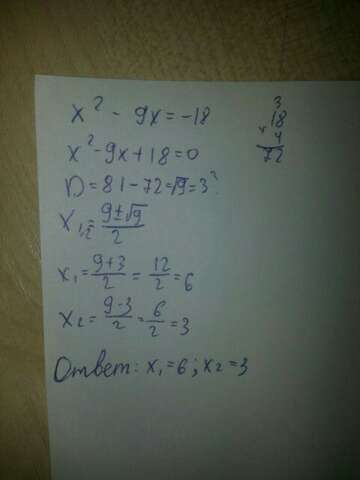 x² - 9x = -18
x² - 9x + 18 = 0
D = 81 - 72 = √9 = 3²
x₁,₂ = (9 ± √9) / 2
x₁ = (9 + 3) / 2 = 12 / 2 = 6
x₂ = (9 - 3) / 2 = 6 / 2 = 3
Ответ: x₁ = 6 ; x₂ = 3
3
18
× 4
72